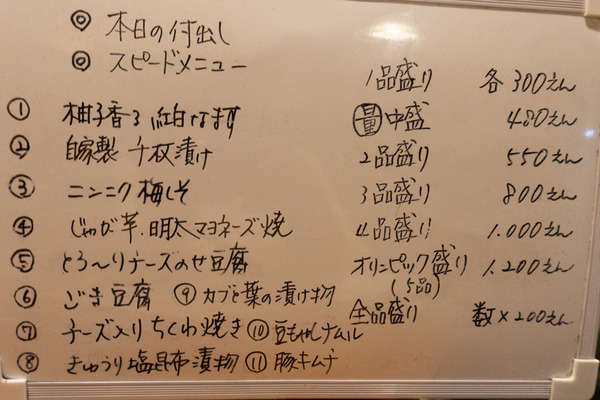 ◎ 本日の付出し
◎ スピードメニュー
① 柚子香る紅白なます
② 自家製 千枚漬け
③ ニンニク梅しそ
④ じゃが芋、明太マヨネーズ焼
⑤ とろ〜りチーズのせ豆腐
⑥ ごま豆腐 ⑨ カブと葉の漬け物
⑦ チーズ入りちくわ焼き ⑩ 豆もやしナムル
⑧ きゅうり塩昆布漬物 ⑪ 豚キムチ
1品盛り 各300えん
量中盛 480えん
2品盛り 550えん
3品盛り 800えん
4品盛り 1.000えん
オリンピック盛り 1.200えん
(5品)
全品盛り 数×200えん